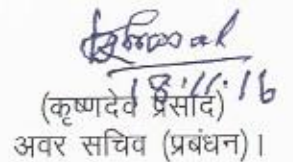 18.11.16
(कृष्णदेव प्रसाद)
अवर सचिव (प्रबंधन)।